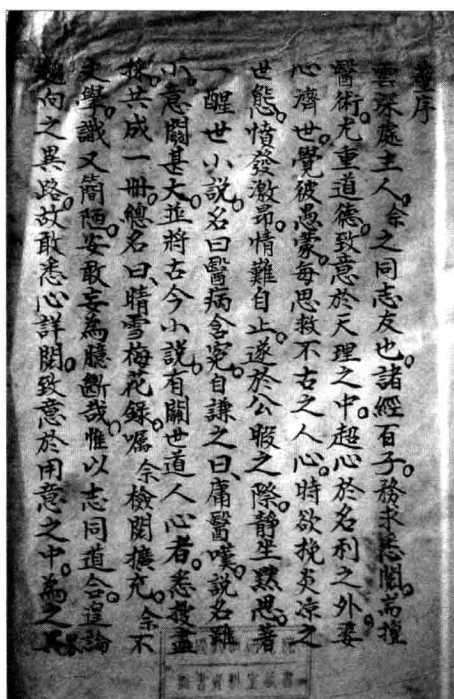 序
雲深處主人余之同志友也諸經百子務求悉閱高擅
醫術尤重道德致意於天理之中超心於名利之外婆
心濟世覺彼愚蒙每思救不古之人心時欲挽炎凉之
世態憤發激昂情難自止遂於公暇之際静坐默思著
醒世小説名曰醫病含冤自謙之曰庸醫嘆説名雖
小意闗甚大並將古今小説有關世道人心者悉搜盡
採共成一冊總名曰晴雪梅花錄囑余檢閱擴充余不
文學識又簡陋安敢妄為臆斷哉惟以志同道合遑論
趨向之異路故敢悉心詳閱致意於用意之中為之